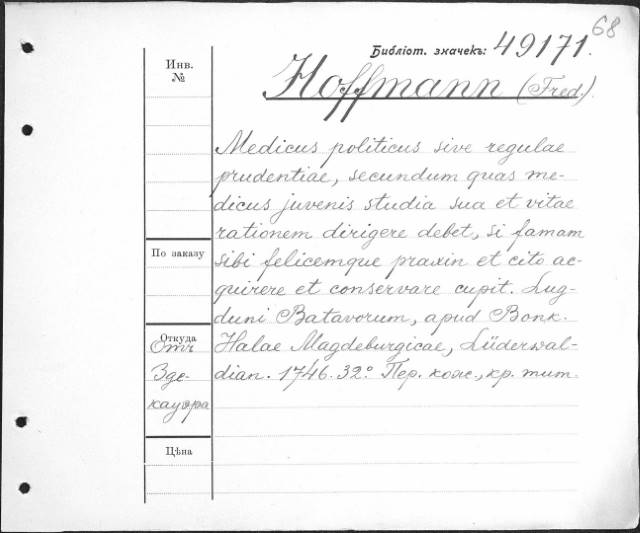 68
Библіот. значекъ: 49171.
Инв.
№
Hoffmann (Fred.).
Medicus politicus sive regulae
prudentiae, secundum quas me-
dicus juvenis studia sua et vitae
rationem dirigere debet, si famam
По заказу
sibi felicemque praxin et cito ac-
quirere et conservare cupit. Lug-
duni Batavorum, apud Bonk.
Откуда
Отъ
Halae Magdeburgicae, Lüderwal-
Зде-
dian. 1746. 32° Пер. кож., кр. тит.
кауэра
Цѣна